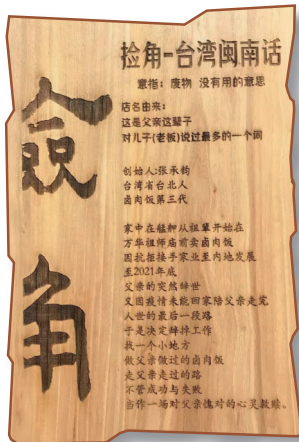 捡角-台湾闽南话
意指：废物 没有用的意思
店名由来：
这是父亲这辈子
对儿子(老板)说过最多的一个词
创始人:张承钧
台湾省台北人
卤肉饭第三代
家中在艋舺从祖辈开始在
万华祖师庙前卖卤肉饭
因抗拒接手家业至内地发展
至2021年底
父亲的突然辞世
又因疫情未能回家陪父亲走完
人世的最后一段路
于是决定辞掉工作
找一个小地方
做父亲做过的卤肉饭
走父亲走过的路
不管成功与失败
当作一场对父亲愧对的心灵救赎。
角